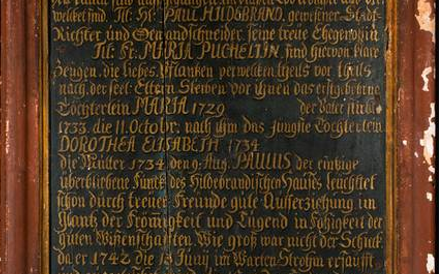 welket sind, Tit. Hr. PAUL HILDEBRAND, gewesener Stadt
Richter und seine treue Ehegenoßin
Tit. Fr. MARIA PUCHELTIN, sind hiervon klare
Zeugen, die liebes Pflantzen verwelkten theils vor theils
nach der seel. Eltern Sterben vor ihnen das erstgebohrne
Töchterlein MARIA 1729 der Vater starbe
1733. die 11. Octobr. nach ihm das jüngste Töchterlein
DOROTHEA ELISABETH 1734
die Mutter 1734 den 9. Aug. PAULUS der eintzige
überbliebene Funck des Hildebrandischen Hauses leuchtet
schon durch treuer Freunde gute Aufferziehung im
Glantz der Frömigkeit und Tugend in Fähigkeit der
guten Wißenschaften. Wie groß war nicht der Schreck
da er 1742 die 13 Juny im Warten Strohm ersaufft